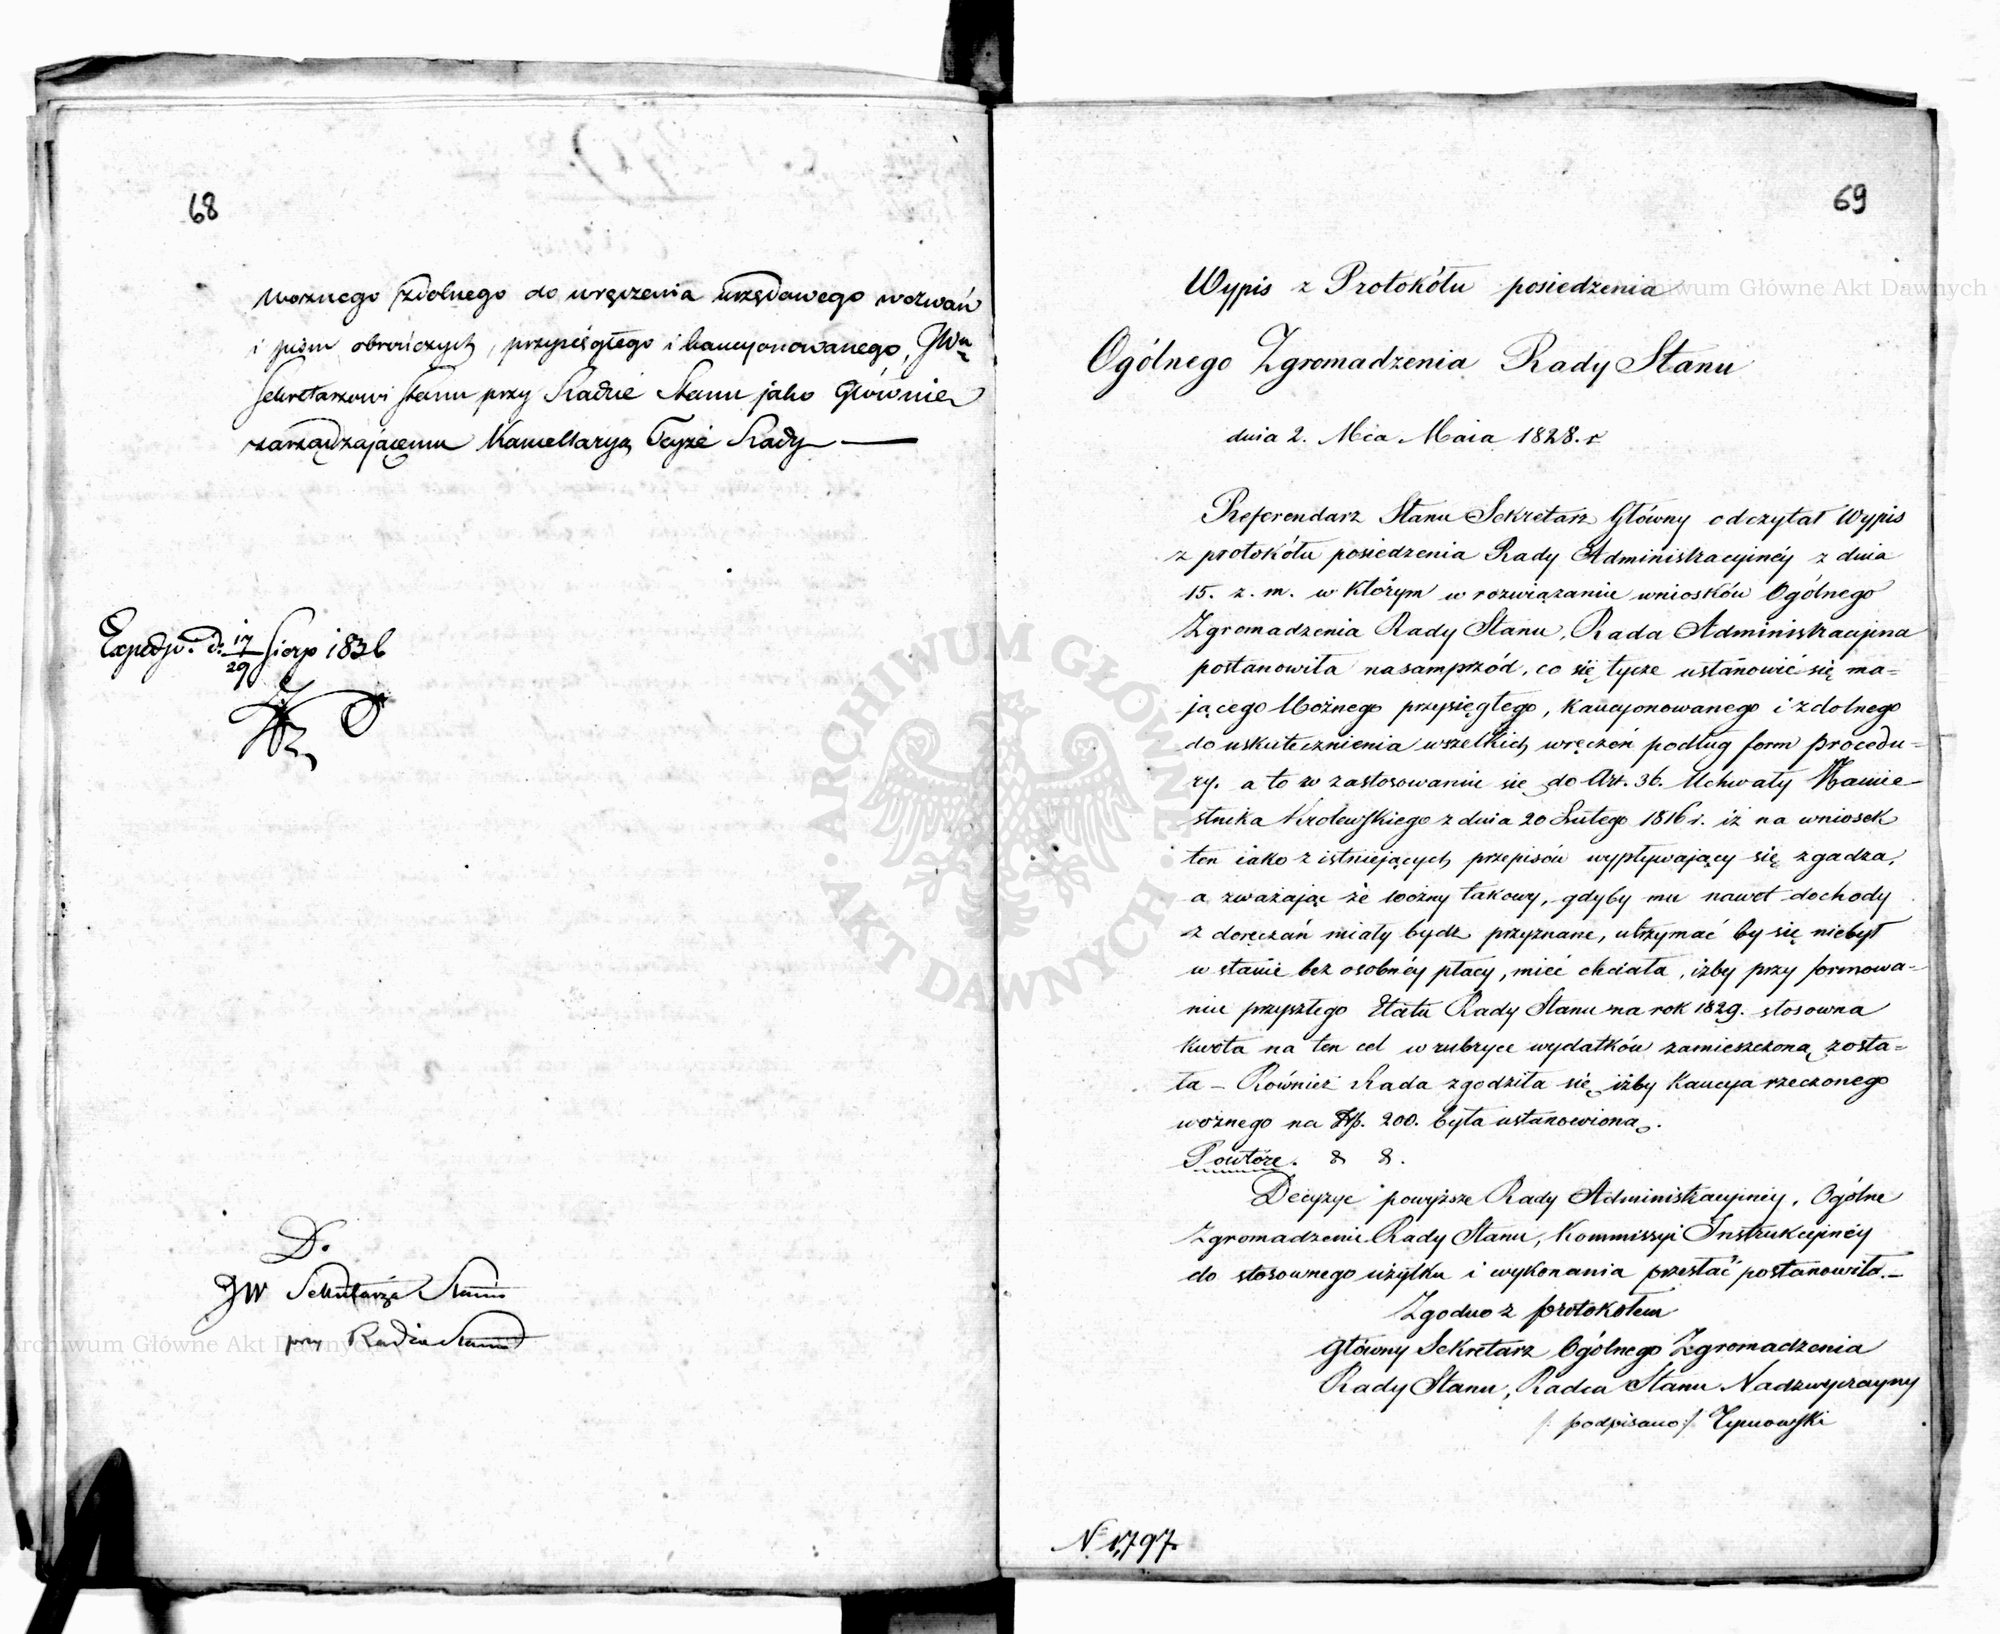 68
Woznego zdolnego do wręczenia urzędowego wezwań
i pism obrończych, przysięgłego i kaucyonowanego, JWu
Sekretarzowi Stanu przy Radzie Stanu jako Głównie
zarządzającemu Kancellaryą Teyże Rady
Expedjo. d. 17/29 Sierp 1836
Do
JW Sekretarza Stanu
przy Radzie Stanu
69
Wypis z Protokółu posiedzenia
Ogólnego Zgromadzenia Rady Stanu
dnia 2. Mca Maia 1828. r
Referendarz Stanu Sekretarz Główny odczytał Wypis
z protokółu posiedzenia Rady Administracyinéy z dnia
15. z. m. w którym w rozwiązaniu wniosków Ogólnego
Zgromadzenia Rady Stanu, Rada Administracyina
postanowiła nasamprzód, co się tycze ustanowić się ma-
jącego Woźnego przysięgłego, kaucyonowanego i zdolnego
do uskutecznienia wszelkich wręczeń podług form procedu-
ry. a to w zastosowaniu się do Art. 36. Uchwały Namie-
stnika Królewskiego z dnia 20 Lutego 1816 r. iż na wniosek
ten iako z istniejących przepisów wypływający się zgadza,
a zważając że woźny takowy, gdyby mu nawet dochody
z doręczań miały bydź przyznane, utrzymać by się niebył
w stanie bez osobnéy płacy, mieć chciała, iżby przy formowa-
niu przyszłego Etatu Rady Stanu na rok 1829. stosowna
kwota na ten cel w rubryce wydatków zamieszczoną zosta-
ła – Również Rada zgodziła się iżby kaucya rzeczonego
woźnego na Złp. 200. była ustanowioną.
Powtóre. & &.
Decyzye powyższe Rady Administracyinéy, Ogólne
Zgromadzenie Rady Stanu, Kommissyi Instrukcyinéy
do stosownego użytku i wykonania przesłać postanowiło. –
Zgodno z protokołem
Główny Sekretarz Ogólnego Zgromadzenia
Rady Stanu, Radca Stanu Nadzwyczayny
/: podpisano :/ Tymowski
№ 1,797.
Archiwum Główne Akt Dawnych
Archiwum Główne Akt Dawnych
· ARCHIWUM GŁÓWNE · AKT DAWNYCH ·